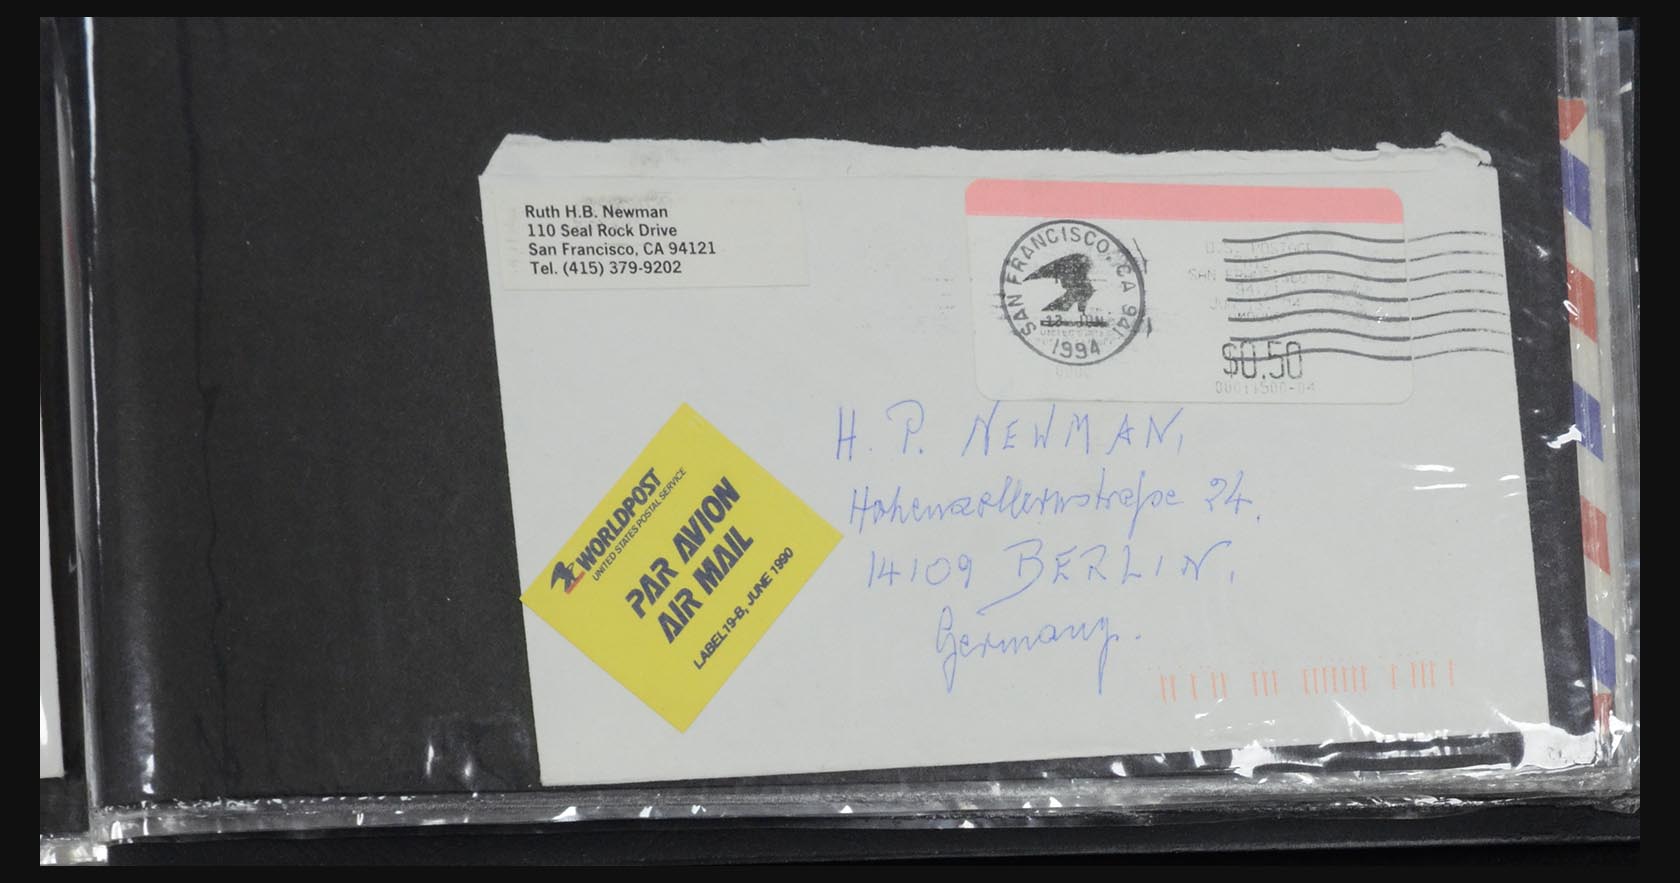 Ruth H.B. Newman
110 Seal Rock Drive
San Francisco, CA 94121
Tel. (415) 379-9202
SAN FRANCISCO, CA 941
13 JUN
1994
U.S. POSTAGE
$0.50
H. P. NEWMAN,
Hohenzollernstraße 24.
14109 BERLIN,
Germany.
WORLDPOST
UNITED STATES POSTAL SERVICE
PAR AVION
AIR MAIL
LABEL 19-B, JUNE 1990